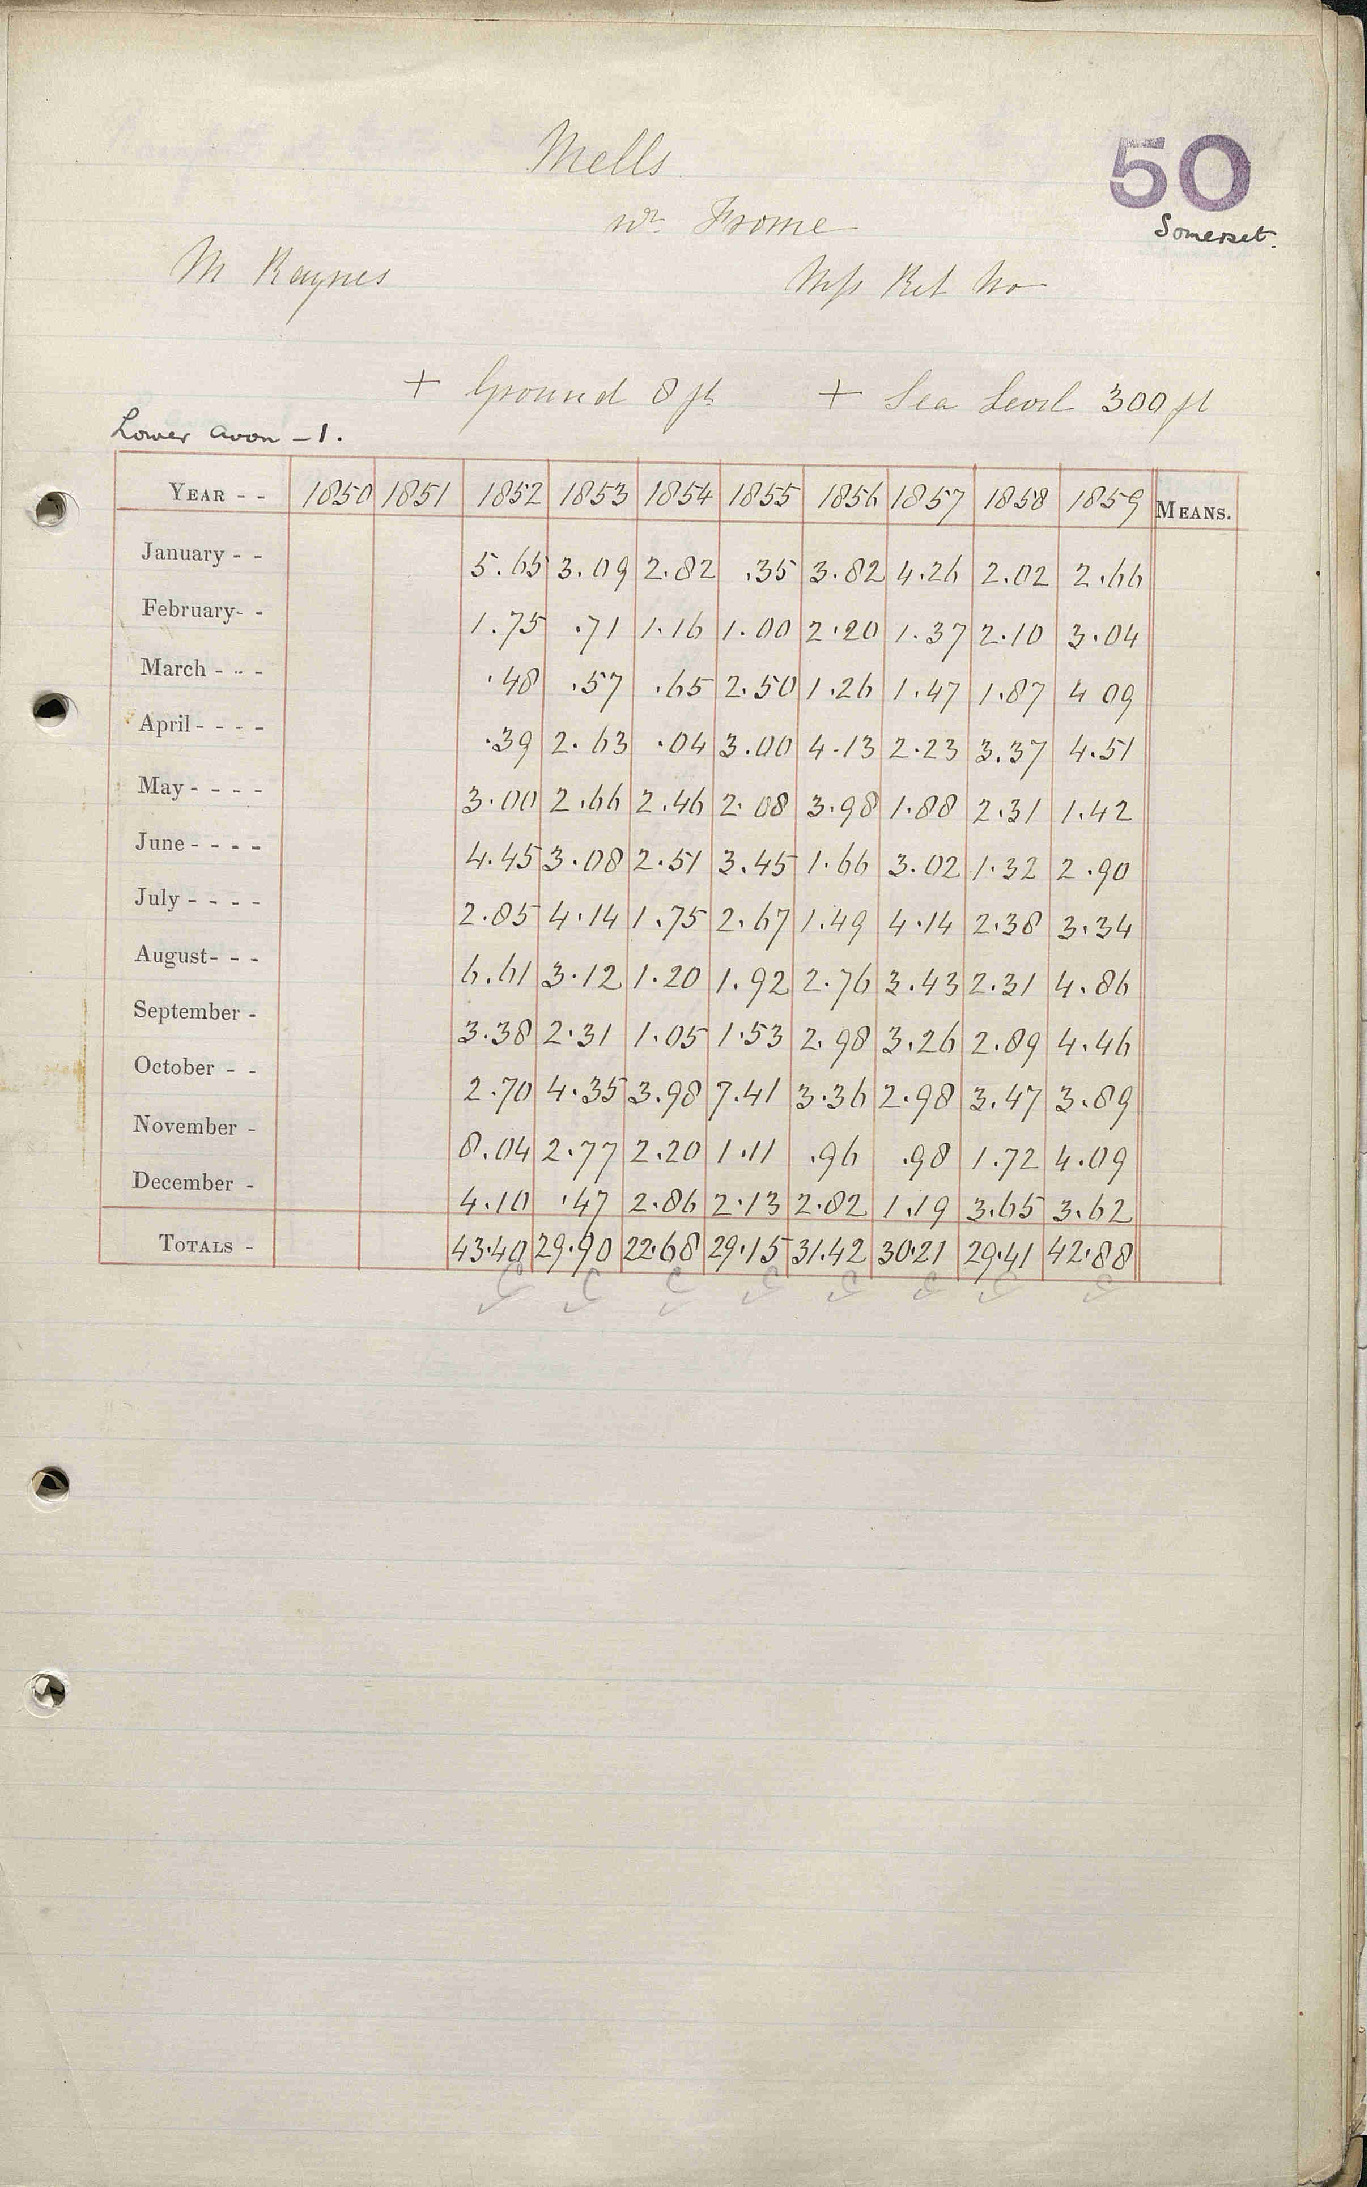 Mells
50
nr Frome
Somerset.
M Haynes
Mss Ret No
+ Ground 8 ft + Sea Level 300 ft
Lower Avon - 1.
YEAR - - 1850 1851 1852 1853 1854 1855 1856 1857 1858 1859 MEANS.
January - - 5.65 3.09 2.82 .35 3.82 4.26 2.02 2.66
February- - 1.75 .71 1.16 1.00 2.20 1.37 2.10 3.04
March - - - .48 .57 .65 2.50 1.26 1.47 1.87 4 09
April - - - - .39 2.63 .04 3.00 4.13 2.23 3.37 4.51
May - - - - 3.00 2.66 2.46 2.08 3.98 1.88 2.31 1.42
June - - - - 4.45 3.08 2.51 3.45 1.66 3.02 1.32 2.90
July - - - - 2.85 4.14 1.75 2.67 1.49 4.14 2.38 3.34
August- - - 6.61 3.12 1.20 1.92 2.76 3.43 2.31 4.86
September - 3.38 2.31 1.05 1.53 2.98 3.26 2.89 4.46
October - - 2.70 4.35 3.98 7.41 3.36 2.98 3.47 3.89
November - 8.04 2.77 2.20 1.11 .96 .98 1.72 4.09
December - 4.10 .47 2.86 2.13 2.82 1.19 3.65 3.62
TOTALS - 43.40 29.90 22.68 29.15 31.42 30.21 29.41 42.88